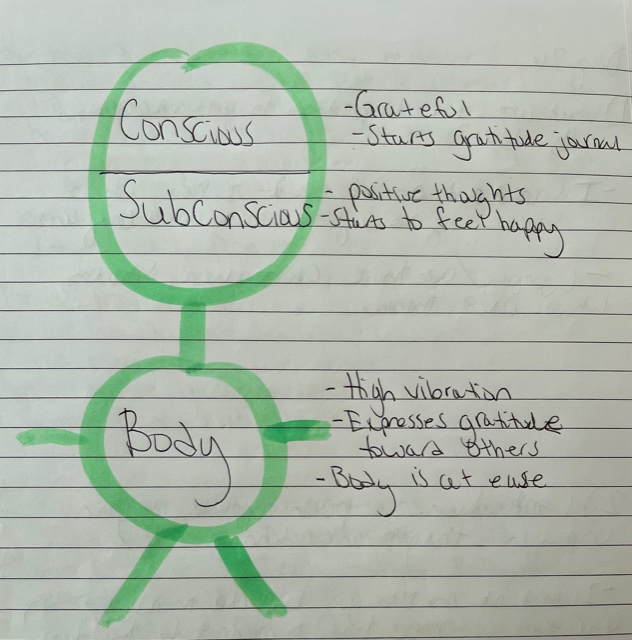 Conscious
-Grateful
-Starts gratitude journal
Subconscious
- positive thoughts
-Starts to feel happy
Body
- High vibration
-Expresses gratitude
toward others
- Body is at ease